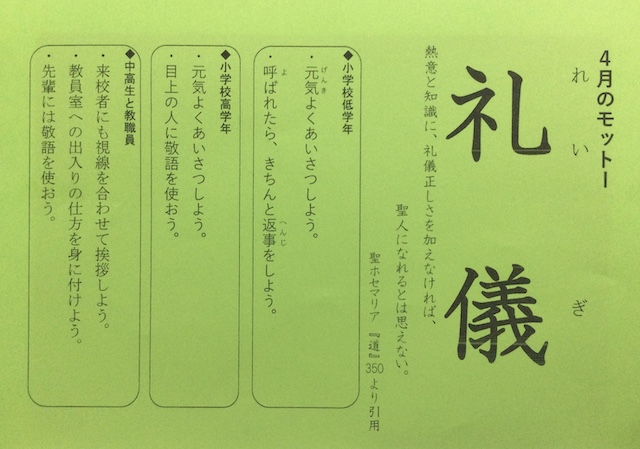 4月のモットー
れいぎ
礼儀
熱意と知識に、礼儀正しさを加えなければ、
聖人になれるとは思えない。
聖ホセマリア『道』350より引用
◆小学校低学年
・元気よくあいさつしよう。
げんき
・呼ばれたら、きちんと返事をしよう。
よ
へんじ
◆小学校高学年
・元気よくあいさつしよう。
・目上の人に敬語を使おう。
◆中高生と教職員
・来校者にも視線を合わせて挨拶しよう。
・教員室への出入りの仕方を身に付けよう。
・先輩には敬語を使おう。